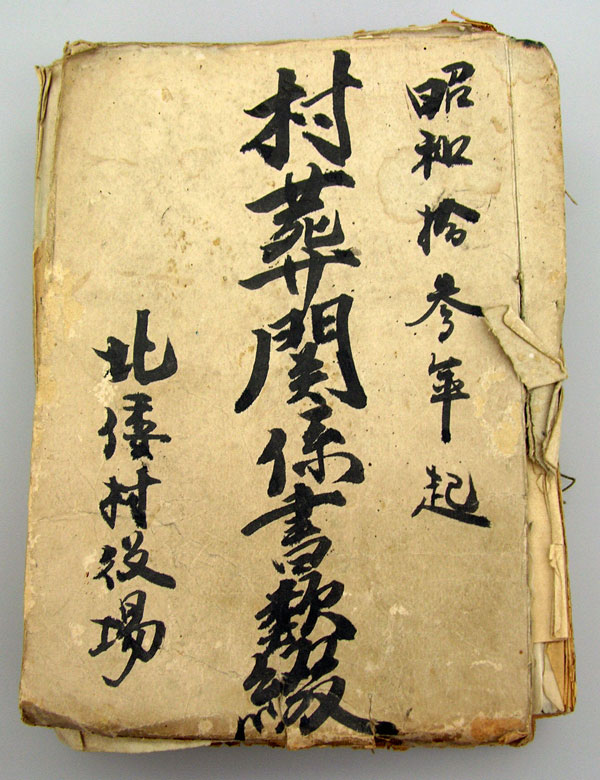 昭和拾参年起
村葬関係書類綴
北倭村役場